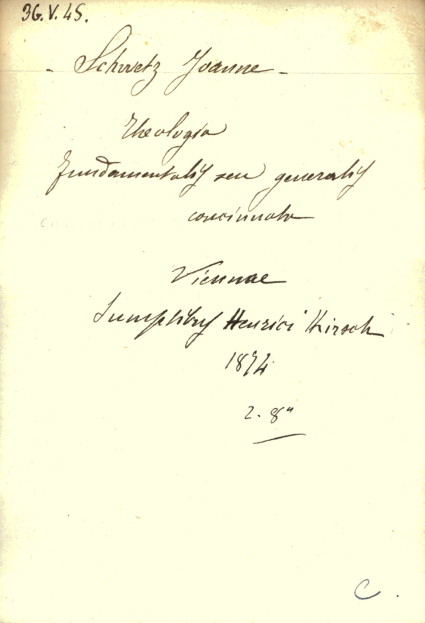 36.V.45.
- Schwetz Joanne -
Theologia
fundamentalis seu generalis
concinnata
Viennae
Sumptibus Henrici Kirsch
1874
2. 8°
C.